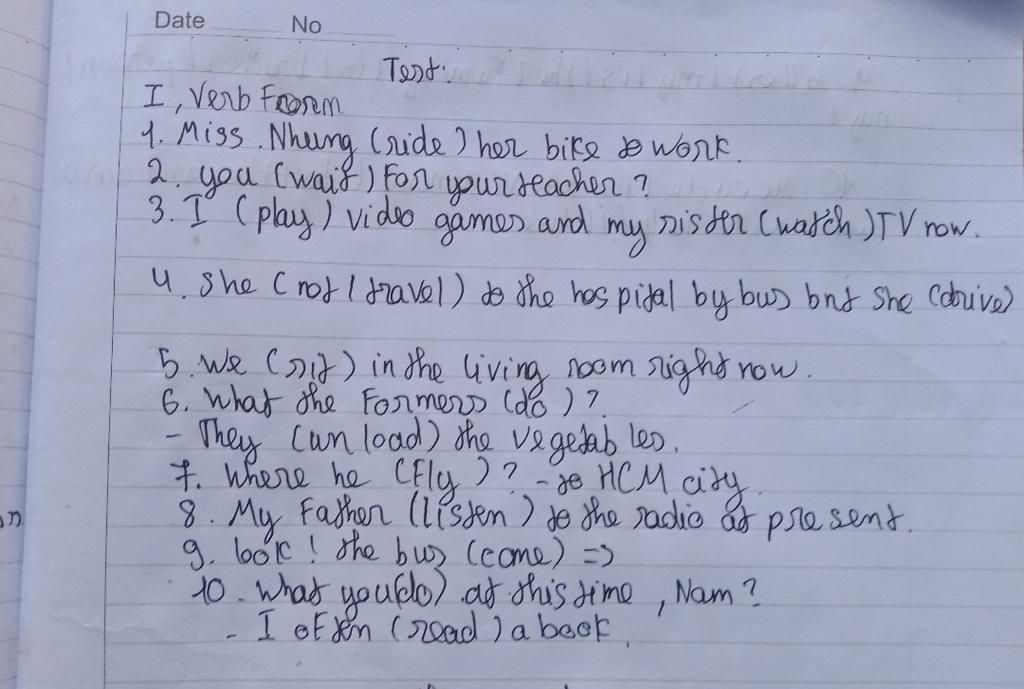 Date No
Test:
I, Verb Form
1. Miss. Nhung (ride) her bike to work.
2. you (wait) For your teacher?
3. I (play) video games and my sister (watch) TV now.
4. she (not / travel) to the hospital by bus but she (drive)
5. We (sit) in the living room right now.
6. What the Formers (do)?
- They (un load) the vegetables.
7. Where he (Fly)? - to HCM city.
8. My Father (listen) to the radio at present.
9. look! the bus (come) =>
10. What you (do) at this time, Nam?
- I often (read) a book.